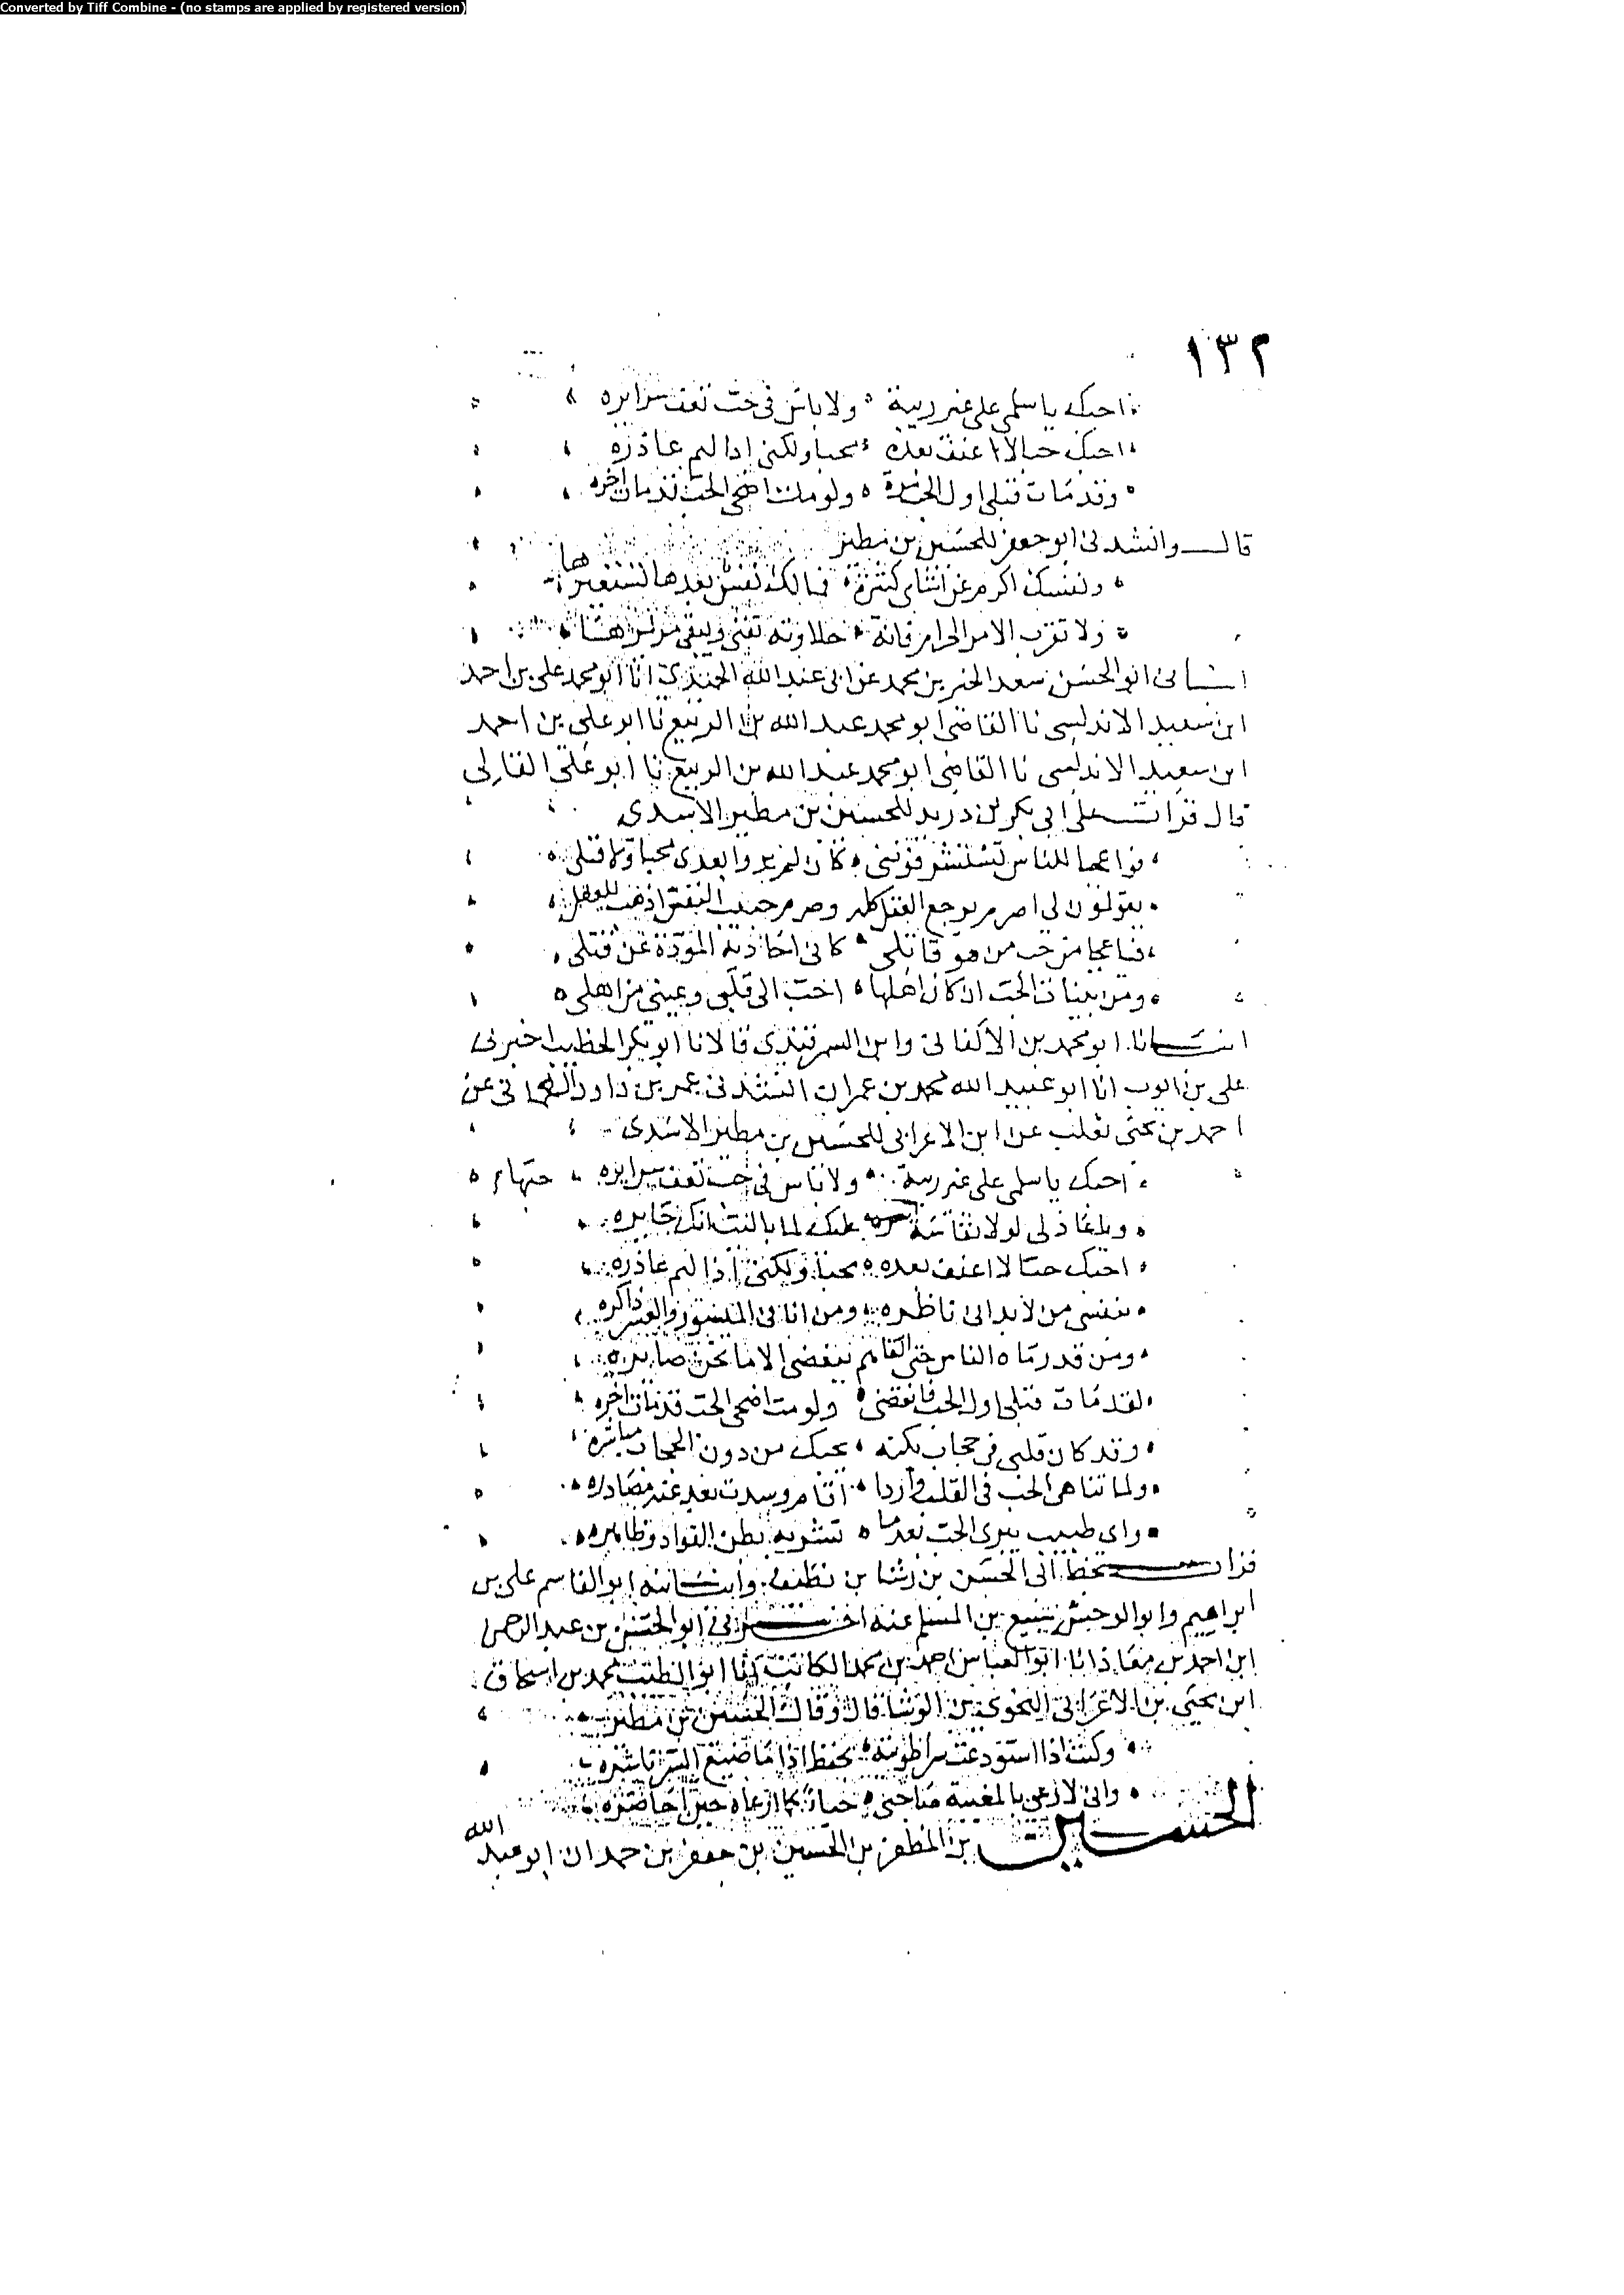 Converted by Tiff Combine - (no stamps are applied by registered version)
١٣٢
احبك يا سلمى على غير ريبة ولا باس في حب تعف سرايره
احبك حبا لا اعنف بعده محبا ولكني اذا ليم عاذره
وقد مات قبلي اول الحب مرة ولو مت اضحى الحب قد مات اخره
قال وانشدني ابو جعفر للحسين بن مطير
ونفسك اكرم عن اشيا كثيرة فما لك نفس بعدها تستعيرها
ولا تقرب الامر الحرام فانه حلاوته تفنى ويبقى مريرها
انبانا ابو الحسن سعد الخير بن محمد عن ابي عبد الله الحميدي انا ابو محمد علي بن احمد
ابن سعيد الاندلسي نا القاضي ابو محمد عبد الله بن الربيع نا ابو علي بن احمد
ابن سعيد الاندلسي نا القاضي ابو محمد عبد الله بن الربيع نا ابو علي القالي
قال قرات على ابي بكر بن دريد للحسين بن مطير الاسدي
فواعجبا للناس يستشرفونني كان لم يروا بعدي محبا ولا قبلي
يقولون لي اصرم يرجع العقل كله وصرم حبيب النفس اذهب للعقل
فيا عجبا من حب من هو قاتلي كاني اجازيه المودة عن قتلي
ومن بينات الحب ان كان اهلها احب الى قلبي وعيني من اهلي
انبانا ابو محمد بن الاكفاني وابن السمرقندي قالا نا ابو بكر الخطيب اخبرني
علي بن ايوب انا ابو عبيد الله محمد بن عمران انشدني عمر بن داود العماني عن
احمد بن يحيى ثعلب عن ابن الاعرابي للحسين بن مطير الاسدي
احبك يا سلمى على غير ريبة ولا باس في حب تعف سرايره
ويا عاذلي لولا نفاسة حبها عليك لما باليت انك جايره
احبك حبا لا اعنف بعده محبا ولكني اذا ليم عاذره
بنفسي من لا بد اني ناظره ومن انا في الميسور والعسر ذاكره
ومن قد رماه الناس حتى اتقاهم ببغضي الا ما تجن ضمايره
لقد مات قبلي اول الحب فانقضى ولو مت اضحى الحب قد مات اخره
وقد كان قلبي في حجاب يكنه بحبك من دون الحجاب مباشره
ولما تناهى الحب في القلب واردا اقام وسدت بعد عنه مصادره
واي طبيب يبري الحب بعد ما تشربه بطن الفواد وظاهره
قرات بخط ابي الحسن بن رشا بن نظيف وانبانيه ابو القاسم علي بن
ابراهيم وابو الوحش سبيع بن المسلم عنه اخبرني ابو الحسن بن عبد الرحمن
ابن احمد بن معاذ انا ابو العباس احمد بن محمد الكاتب انا ابو الطيب محمد بن اسحاق
ابن يحيى بن الاعرابي النحوي بن الوشا قال وقال الحسين بن مطير
وكنت اذا استودعت سرا طويته بحفظ اذا ما ضيع السر ناشره
واني لارعى بالمغيبة صاحبي حياء كما ارعاه حين احاضره
الحسين بن المظفر بن الحسين بن جعفر بن حمدان ابو عبد الله